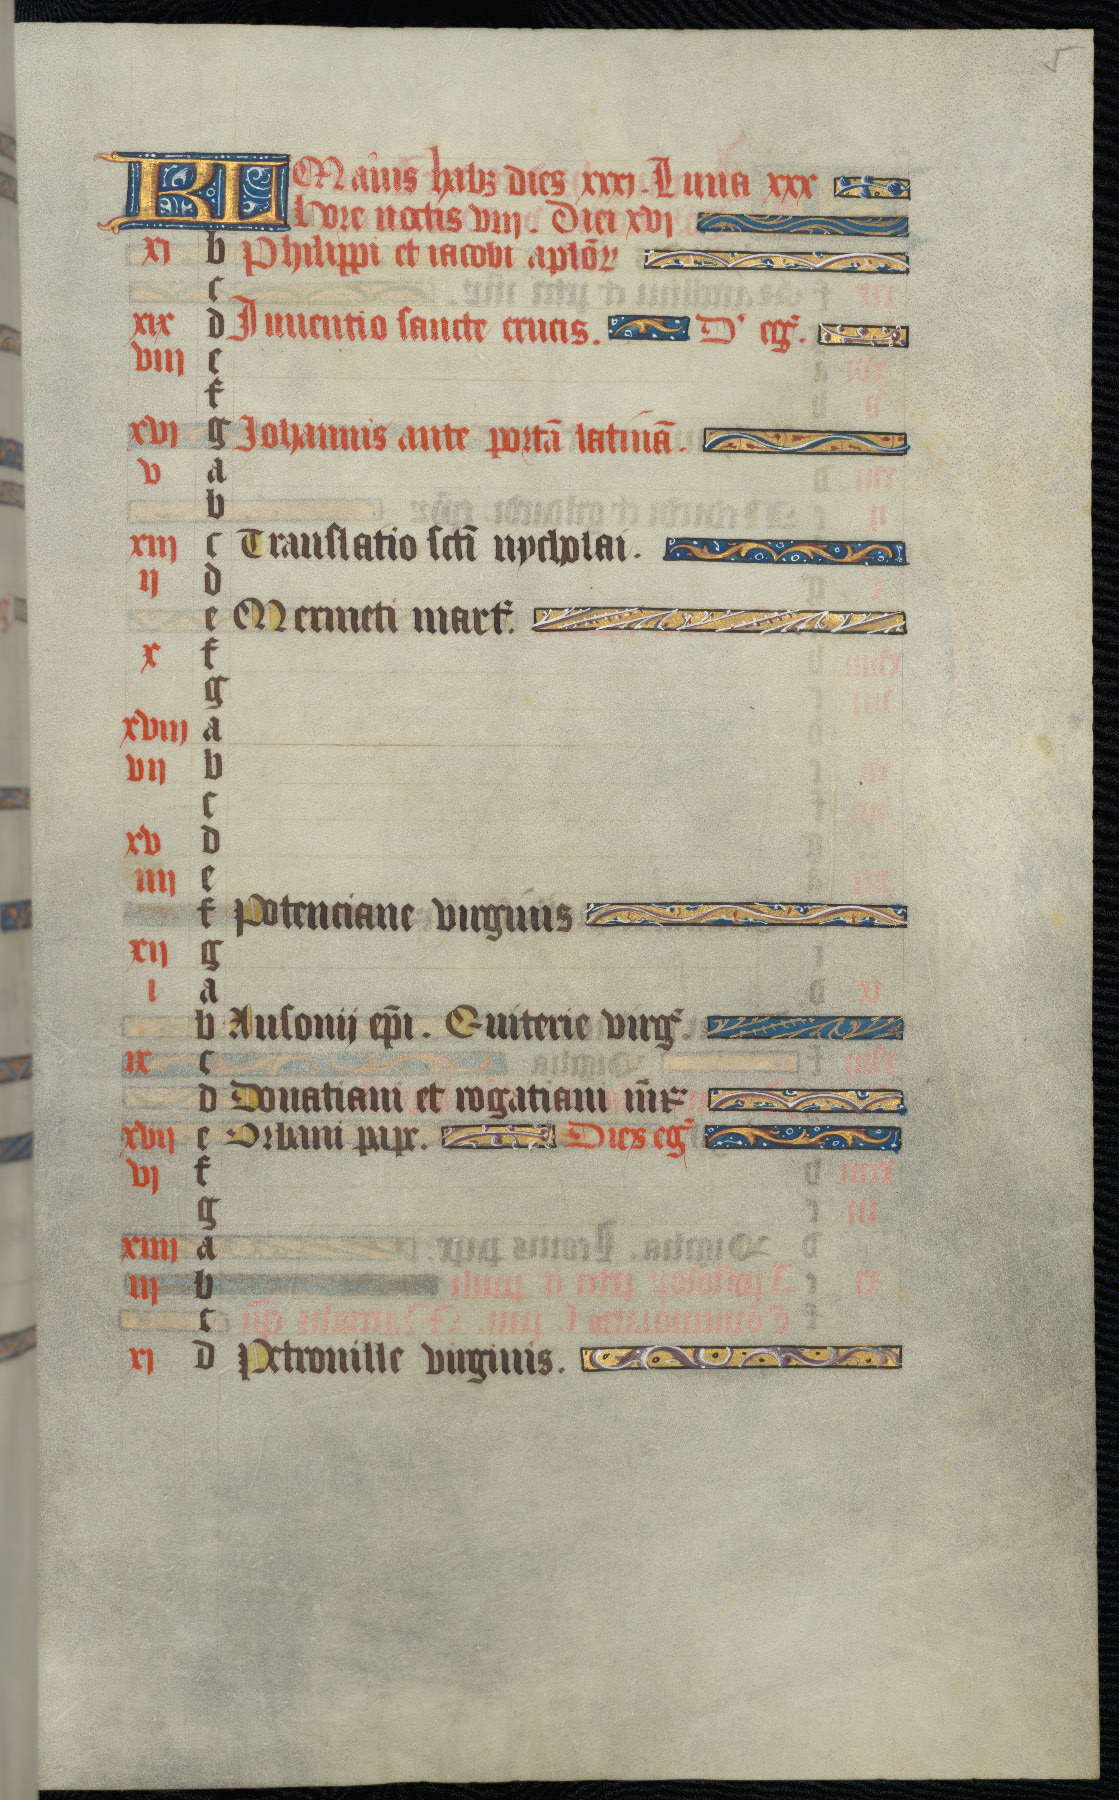 5
KL Maius habz dies xxxi. Luna xxx
hore noctis viii. Diei xvi
xi b Philippi et iacobi aplōꝝ
c
xix d Inuentio sancte crucis. D' eg̃.
viii e
f
xvi g Johannis ante portā latinā.
v a
b
xiii c Translatio scti nycholai.
ii d
e Mermeti mart̃.
x f
g
xviii a
vii b
c
xv d
iiii e
f Potenciane virginis
xii g
i a
b Ausonii ep̄i. Quiterie virg̃.
ix c
d Donatiani et rogatiani m̄r
xvii e Urbani pape. Dies eg̃
vi f
g
xiiii a
iii b
c
xi d Petronille virginis.